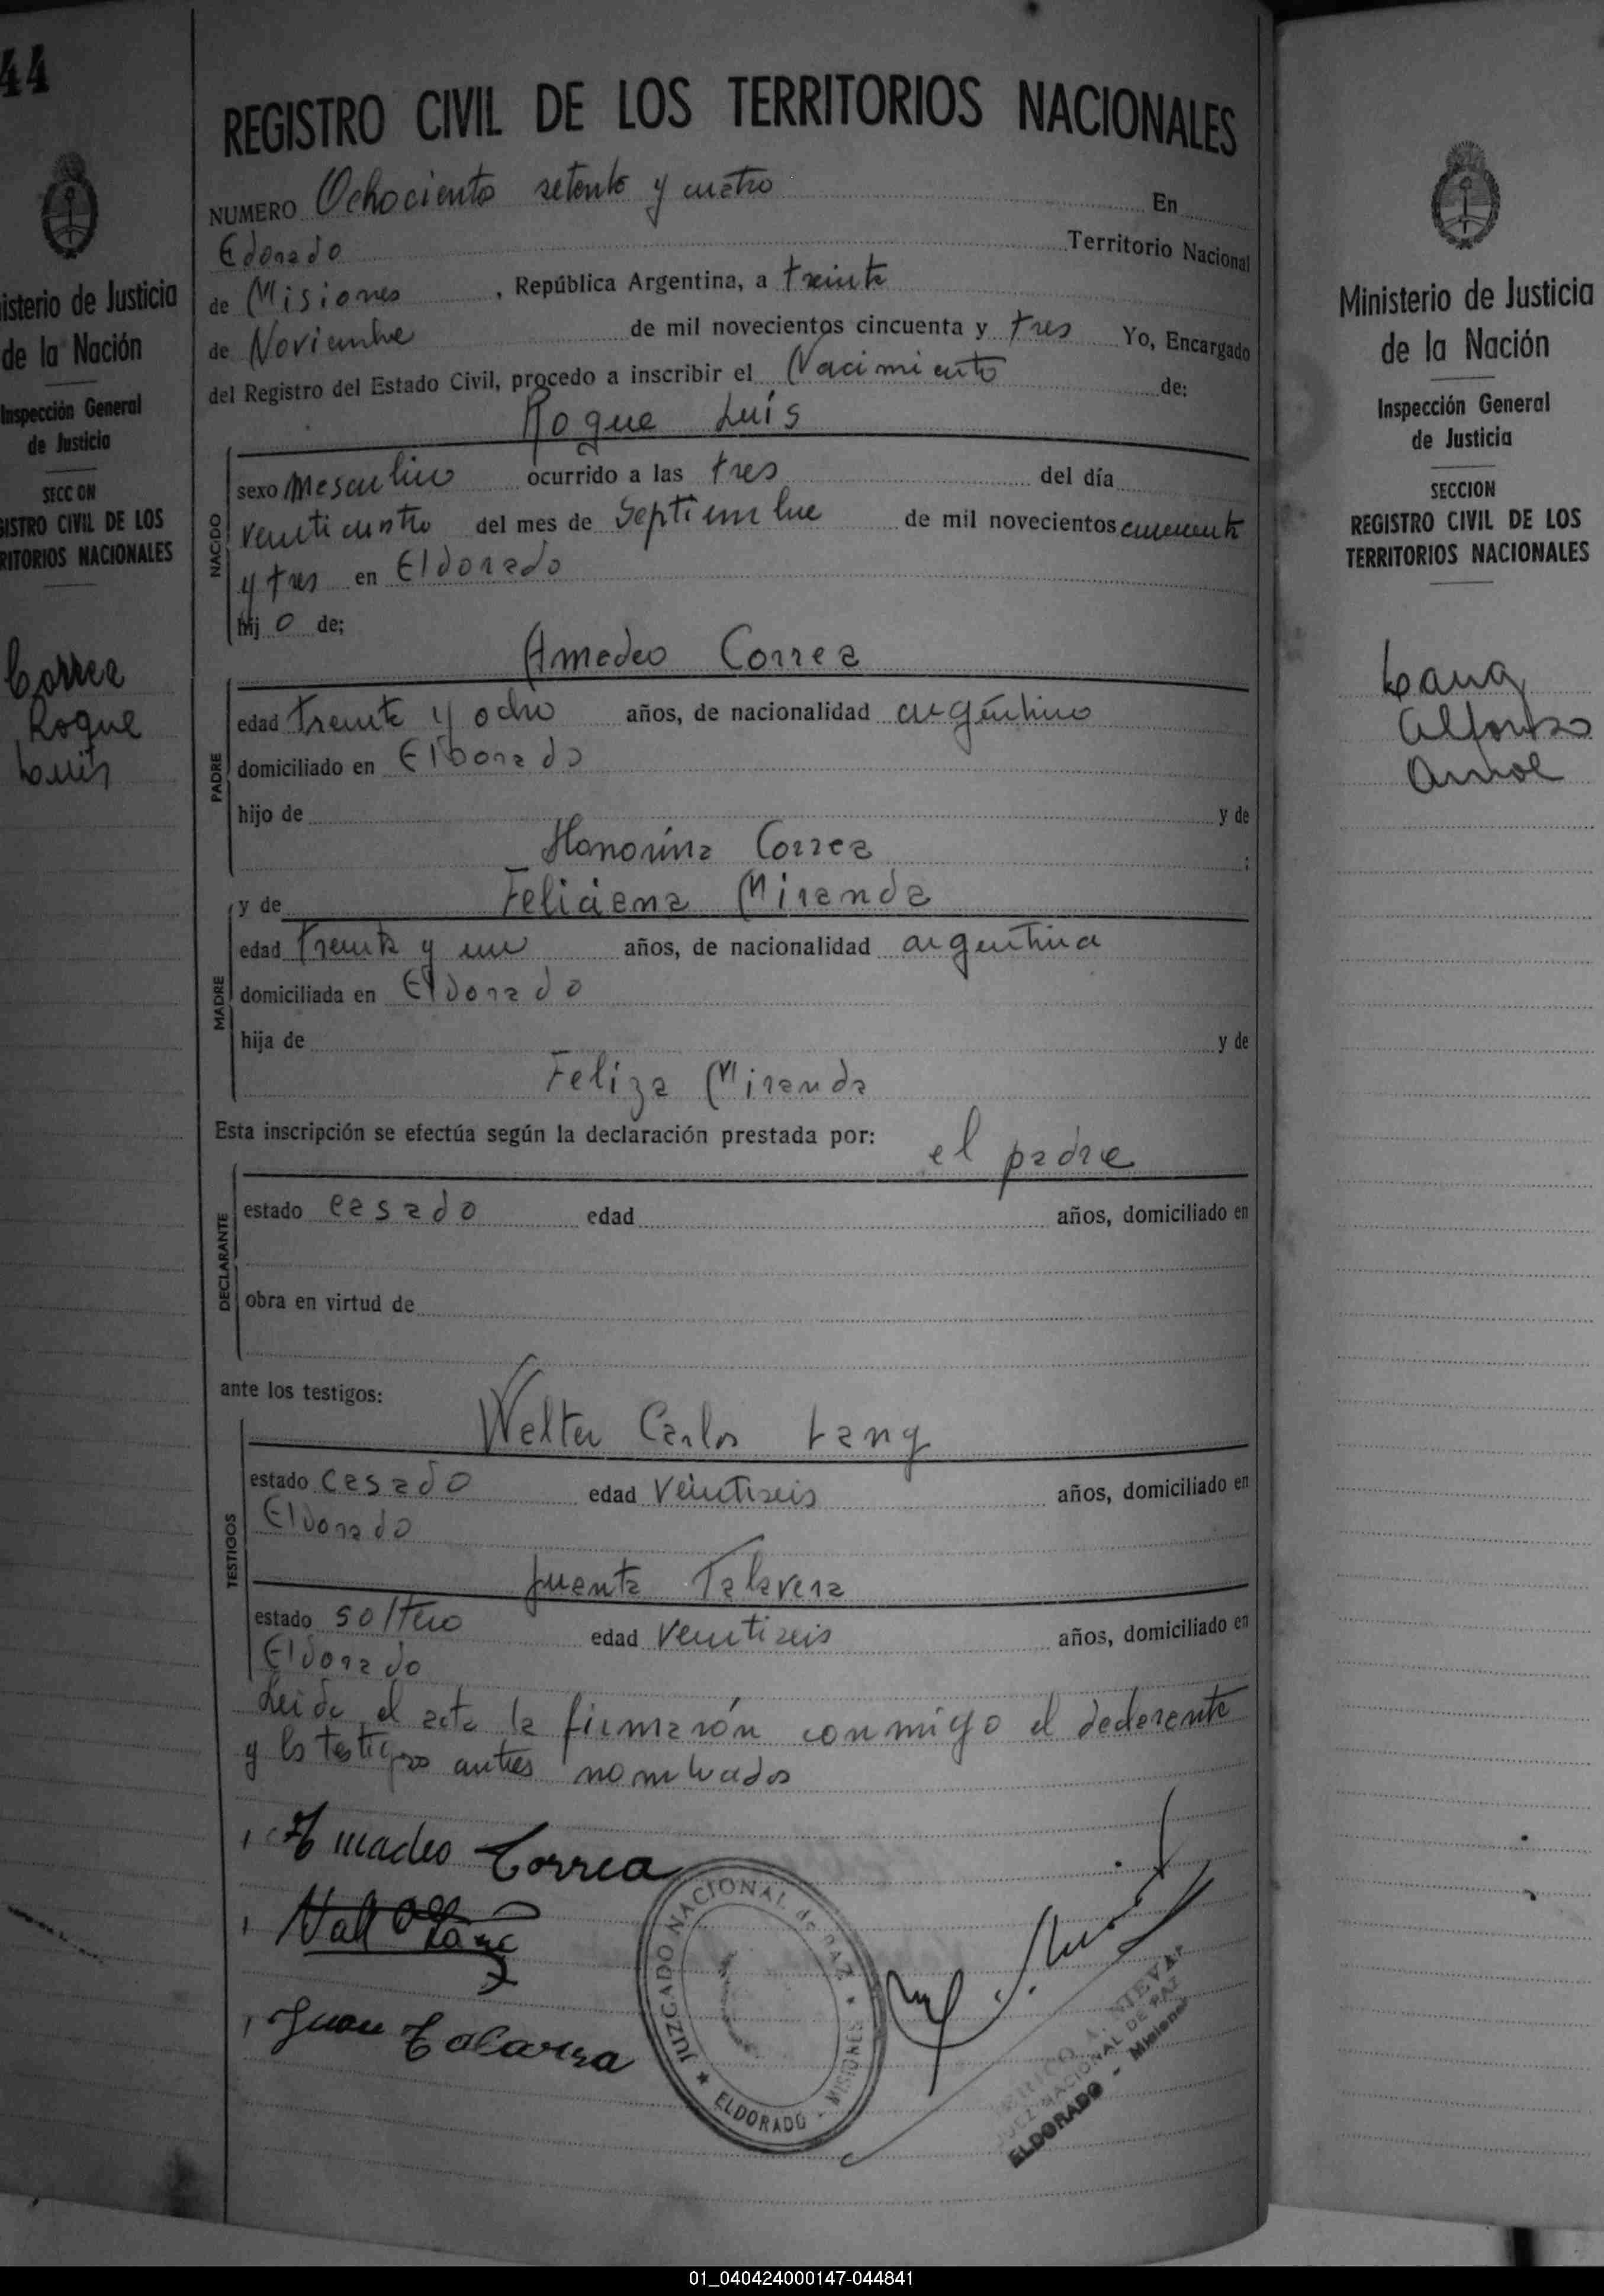 44
REGISTRO CIVIL DE LOS TERRITORIOS NACIONALES
NUMERO Ochociento setenta y cuatro En
Edorado Territorio Nacional
de Misiones, República Argentina, a treinta
de Noviembre de mil novecientos cincuenta y tres Yo, Encargado
del Registro del Estado Civil, procedo a inscribir el Nacimiento de:
Roque Luís
NACIDO
sexo Masculino ocurrido a las tres del día
veinticuatro del mes de Septiembre de mil novecientos cincuenta
y tres en Eldorado
hij o de;
Amadeo Correa
PADRE
edad treinta y ocho años, de nacionalidad argentino
domiciliado en Eldorado
hijo de y de
Honorina Correa ;
y de Feliciana Miranda
MADRE
edad treinta y un años, de nacionalidad argentina
domiciliada en Eldorado
hija de y de
Feliza Miranda
Esta inscripción se efectúa según la declaración prestada por: el padre
DECLARANTE
estado casado edad años, domiciliado en
obra en virtud de
ante los testigos:
Walter Carlos Lang
TESTIGOS
estado casado edad veintiseis años, domiciliado en
Eldorado
Juanta Talavera
estado soltero edad veintiseis años, domiciliado en
Eldorado
Leida el acta la firmarón conmigo el declarante
y los testigos antes nombrados
Amadeo Correa
Juan Talavera
JUZGADO NACIONAL de PAZ
ELDORADO - MISIONES
JUEZ NACIONAL DE PAZ
ELDORADO - Misiones
isterio de Justicia
de la Nación
Inspección General
de Justicia
SECCION
GISTRO CIVIL DE LOS
RITORIOS NACIONALES
Correa
Roque
Luis
Ministerio de Justicia
de la Nación
Inspección General
de Justicia
SECCION
REGISTRO CIVIL DE LOS
TERRITORIOS NACIONALES
Lang
Alfonso
01_040424000147-044841